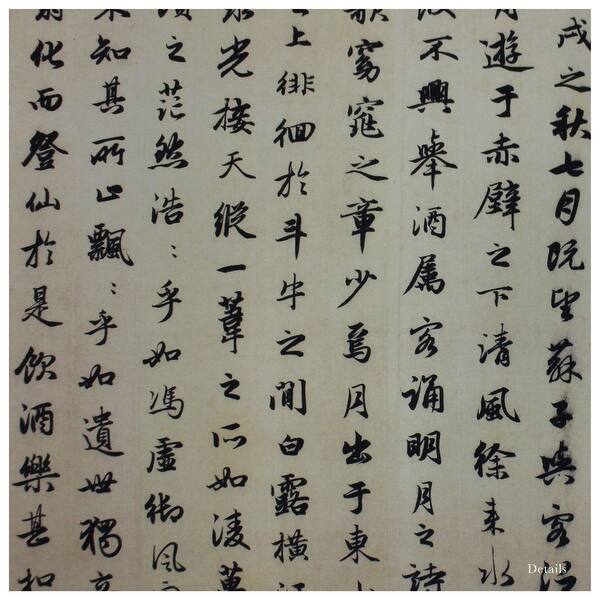 戌之秋七月既望蘇子與客泛
遊于赤壁之下清風徐来水
不興舉酒属客誦明月之詩
歌窈窕之章少焉月出于東
上徘徊於斗牛之間白露橫江
光接天縱一葦之所如凌萬
頃之茫然浩〻乎如馮虛御風
知其所止飄〻乎如遺世獨
化而登仙於是飲酒樂甚扣
Details